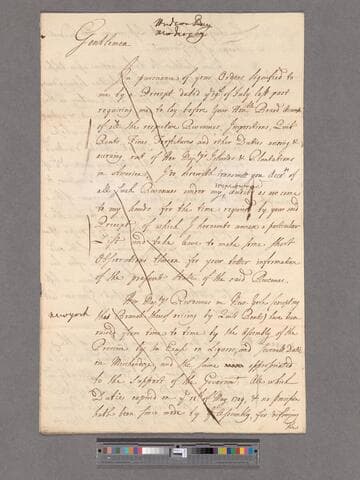 Gentlemen
In pursuance of your Orders signified to
me by a Precept dated ye 19th of July last past
requiring me to lay before your Honble Board
of all the respective Revenues, Impositions, Quit
Rents, Fines, Forfeitures and other Duties arising &
accruing out of Her Majtys Islands & Plantations
in America, I do herewith transmit you Accots of
all such Revenues under my Audit as are come
to my hands for the time required by your said
Precept, of which I hereunto annex a particular
List and take leave to make some short
Observations thereon for your better information
of the present State of the said Revenues.
newyork
Her Majtys Revenues in New York (excepting
that Branch thereof arising by Quit Rents) have been
raised from time to time by the Assembly of the
Province by an Excise on Liquors, and severall Duties
on Merchandize and the same appropriated
to the Support of the Governmt All which
Duties expired on ye of May 1709, & no provision
hath been since made by ye Assembly for